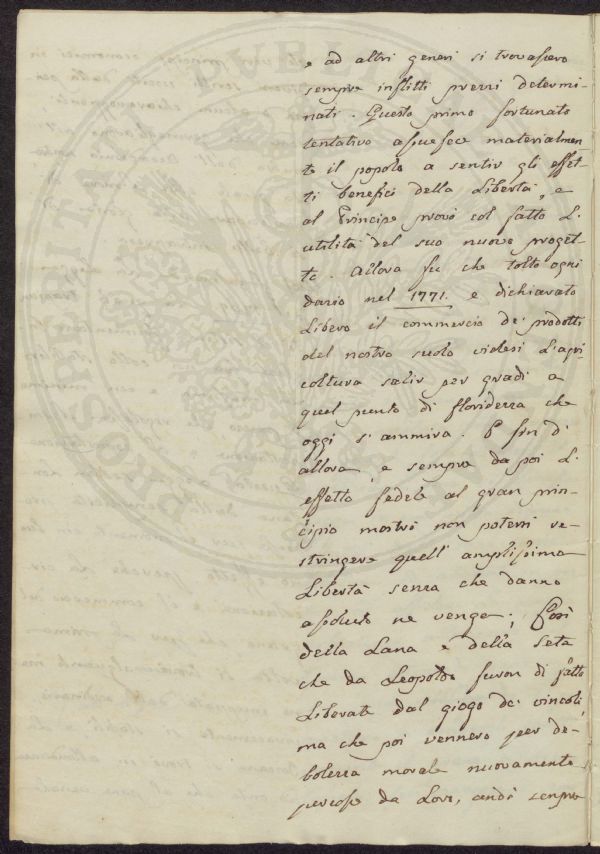 e ad altri generi si trovassero
sempre inflitti prezzi determi-
nati. Questo primo fortunato
tentativo assuefece materialmen-
te il popolo a sentir gli effet-
ti benefici della Libertà, e
al Principe provò col fatto l'
utilità del suo nuovo proget-
to. Allora fu che tolto ogni
dazio nel 1771. e dichiarato
Libero il commercio de' prodotti
del nostro suolo videsi l'agri-
coltura salir per gradi a
quel punto di floridezza che
oggi s'ammira. E fin d'
allora, e sempre da poi l'
effetto fedele al gran prin-
cipio mostrò non potersi re-
stringere quell'amplissima
Libertà senza che danno
assoluto ne venga; Così
della Lana e della Seta
che da Leopoldo furon di fatto
Liberate dal giogo de' vincoli,
ma che poi vennero per de-
bolezza morale nuovamente
da Lori, andò sempre